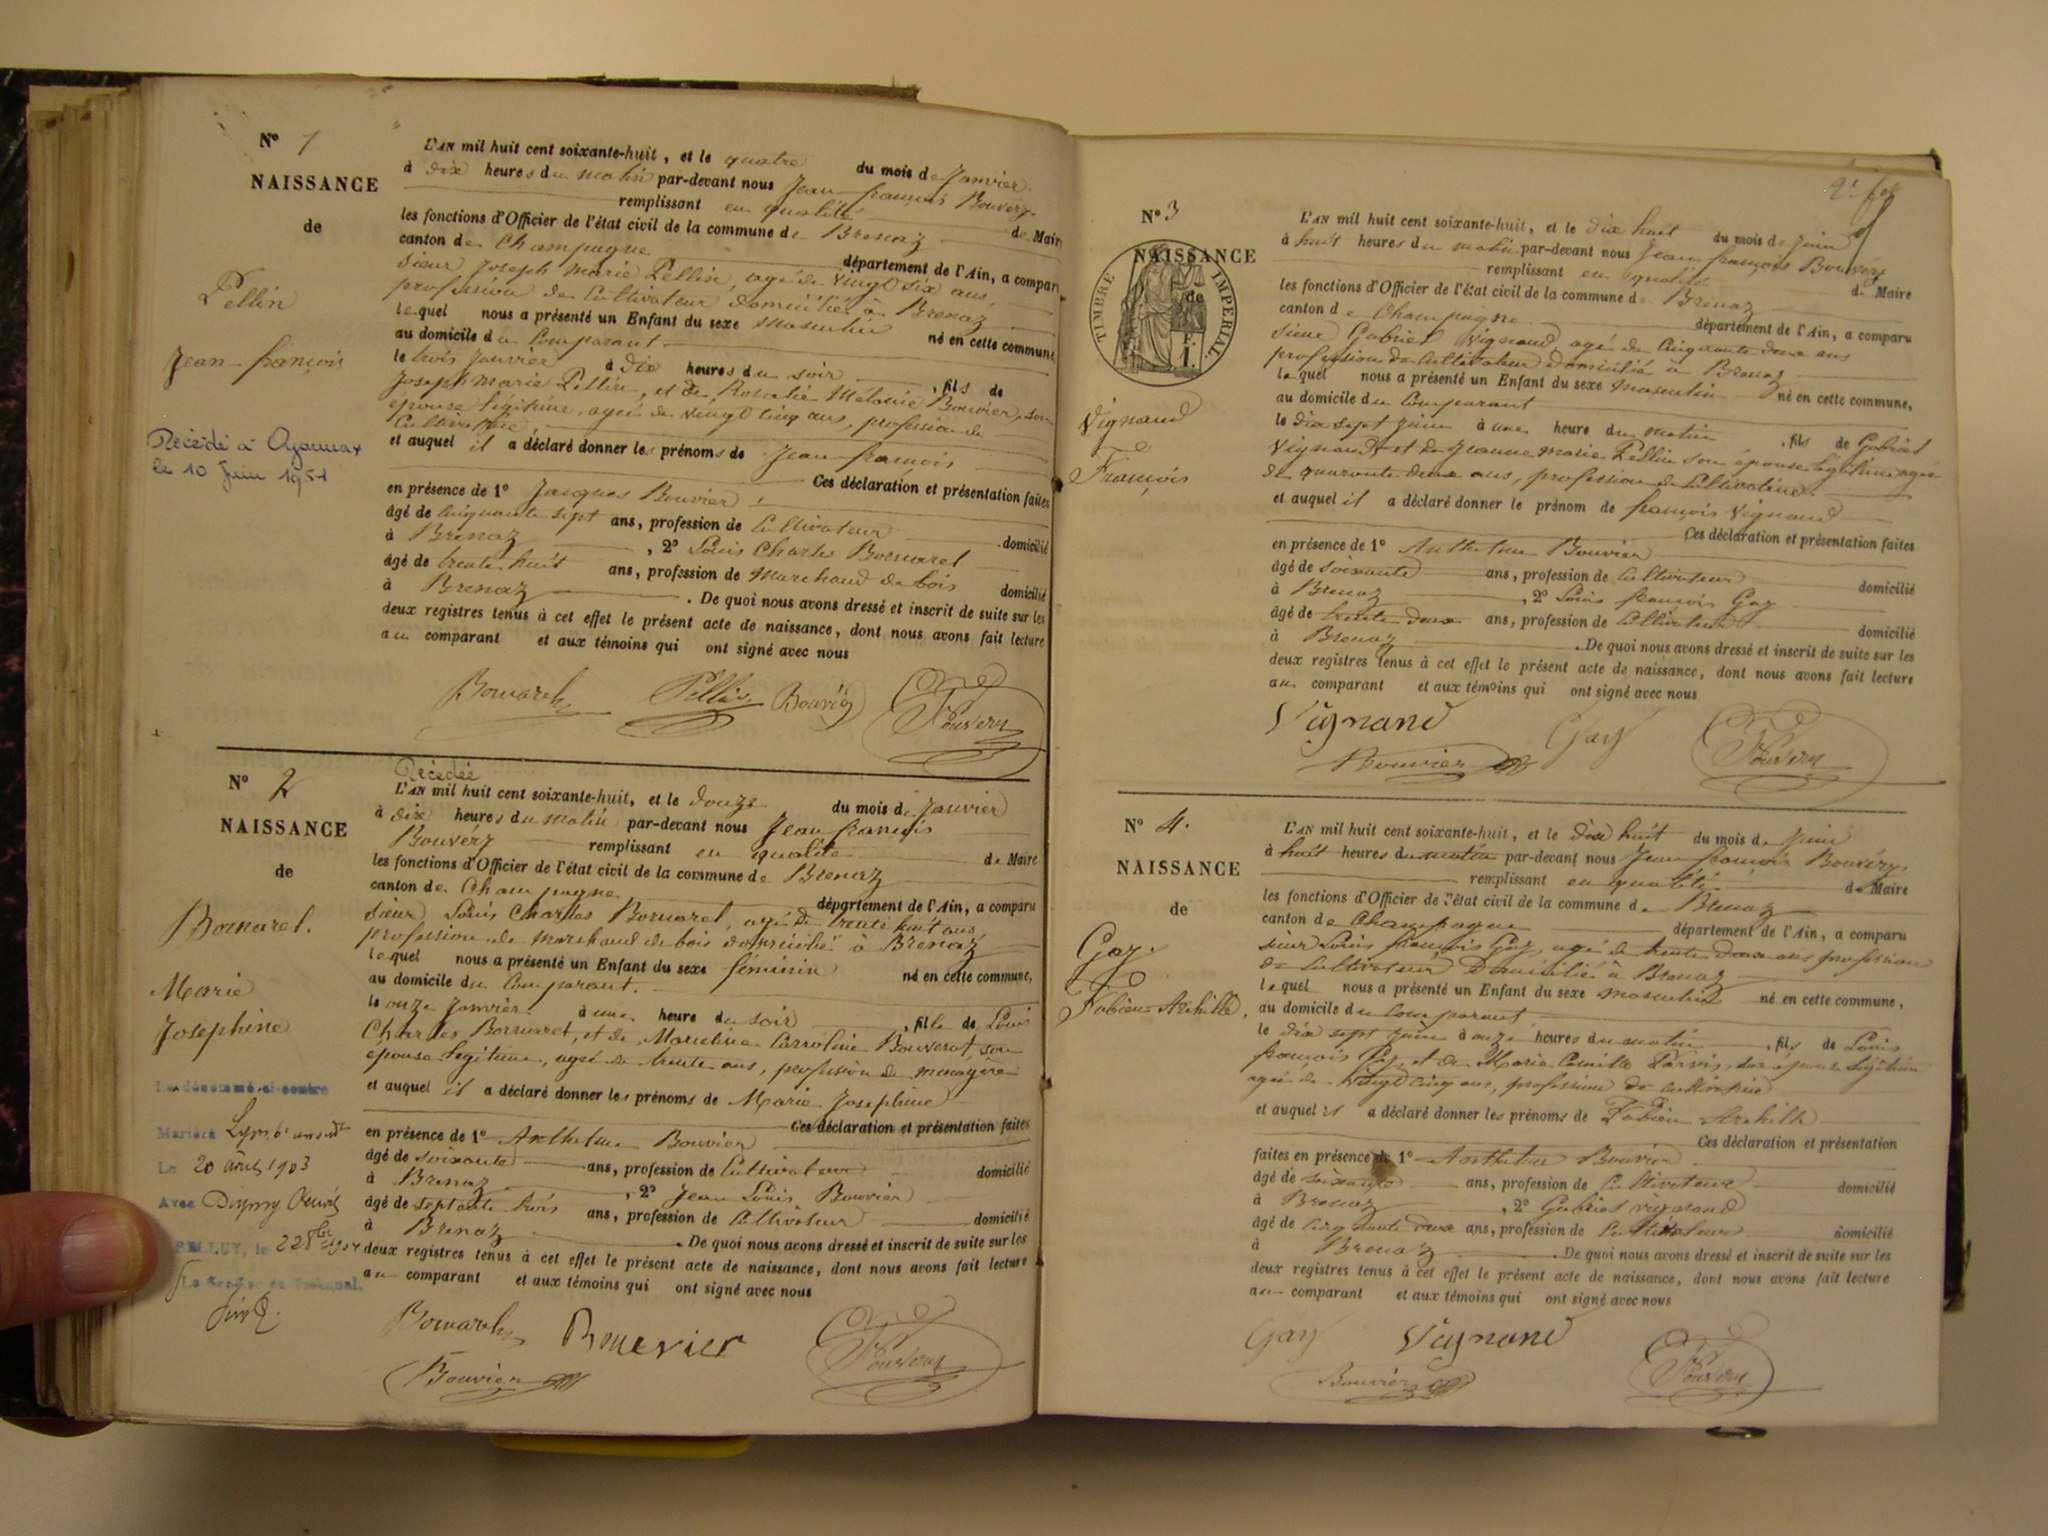 N° 1
NAISSANCE
de
Pellin
Jean-françois
Décédé à Oyonnax
le 10 Juin 1951
L'AN mil huit cent soixante-huit, et le quatre du mois de Janvier
à dix heures du matin par-devant nous Jean françois Bouvéry
remplissant en qualité de Maire
les fonctions d'Officier de l'état civil de la commune de Brenaz
canton de Champagne département de l'Ain, a comparu
sieur Joseph Marie Pellin, agé de vingt six ans,
profession de Cultivateur domicilié à Brenaz
lequel nous a présenté un Enfant du sexe masculin né en cette commune
au domicile du Comparant
le trois Janvier à dix heures du soir, fils de
Joseph Marie Pellin, et de Rosalie Mélanie Bouvier, son
épouse légitime, agée de vingt cinq ans, profession de
Cultivatrice
et auquel il a déclaré donner les prénoms de Jean françois
Ces déclaration et présentation faites
en présence de 1° Jacques Bouvier
âgé de cinquante sept ans, profession de Cultivateur domicilié
à Brenaz, 2° Louis Charles Bornarel
âgé de trente huit ans, profession de Marchand de bois domicilié
à Brenaz. De quoi nous avons dressé et inscrit de suite sur les
deux registres tenus à cet effet le présent acte de naissance, dont nous avons fait lecture
au comparant et aux témoins qui ont signé avec nous
Pellin
N° 2
NAISSANCE
de
Bornarel.
Marie
Josephine
La dénommée ci-contre
Mariée à
Le 20 août 1903
Avec
BELLEY, le
Le Greffier du Tribunal.
Décédée
L'AN mil huit cent soixante-huit, et le douze du mois de Janvier
à dix heures du matin par-devant nous Jean françois
Bouvéry remplissant en qualité de Maire
les fonctions d'Officier de l'état civil de la commune de Brenaz
canton de Champagne département de l'Ain, a comparu
sieur Louis Charles Bornarel, agé de trente huit ans,
profession de marchand de bois domicilié à Brenaz
lequel nous a présenté un Enfant du sexe féminin né en cette commune,
au domicile du Comparant.
le onze Janvier à une heure du soir, fille de Louis
Charles Bornarel, et de Marceline Carroline Bouverot, son
épouse légitime, agée de trente ans, profession de ménagère
et auquel il a déclaré donner les prénoms de Marie Josephine
Ces déclaration et présentation faites
en présence de 1° Anthelme Bouvier
âgé de soixante ans, profession de Cultivateur domicilié
à Brenaz, 2° Jean Louis Bouvier
âgé de septante trois ans, profession de Cultivateur domicilié
à Brenaz. De quoi nous avons dressé et inscrit de suite sur les
deux registres tenus à cet effet le présent acte de naissance, dont nous avons fait lecture
au comparant et aux témoins qui ont signé avec nous
Bouvier
Bouvier
N° 3
NAISSANCE
de
TIMBRE IMPERIAL
Vignand
François
L'AN mil huit cent soixante-huit, et le dix huit du mois de Juin
à huit heures du matin par-devant nous Jean françois Bouvéry
remplissant en qualité de Maire
les fonctions d'Officier de l'état civil de la commune de Brenaz
canton de Champagne département de l'Ain, a comparu
sieur Gabriel Vignand agé de cinquante deux ans
profession de Cultivateur domicilié à Brenaz
lequel nous a présenté un Enfant du sexe masculin né en cette commune,
au domicile du Comparant
le dix sept Juin à une heure du matin, fils de Gabriel
Vignand et de Jeanne Marie Pellin son épouse légitime agée
de quarante deux ans, profession de Cultivatrice.
et auquel il a déclaré donner le prénom de françois Vignand
Ces déclaration et présentation faites
en présence de 1° Anthelme Bouvier
âgé de soixante ans, profession de Cultivateur domicilié
à Brenaz, 2° Louis françois Gay
âgé de trente deux ans, profession de Cultivateur domicilié
à Brenaz. De quoi nous avons dressé et inscrit de suite sur les
deux registres tenus à cet effet le présent acte de naissance, dont nous avons fait lecture
au comparant et aux témoins qui ont signé avec nous
Vignand Gay
Bouvier
N° 4.
NAISSANCE
de
Gay.
Fabien Achille
L'AN mil huit cent soixante-huit, et le dix huit du mois de Juin
à huit heures du matin par-devant nous Jean françois Bouvéry.
remplissant en qualité de Maire
les fonctions d'Officier de l'état civil de la commune de Brenaz
canton de Champagne département de l'Ain, a comparu
sieur Louis françois Gay, agé de trente deux ans profession
de Cultivateur Domicilié à Brenaz
lequel nous a présenté un Enfant du sexe masculin né en cette commune,
au domicile du Comparant
le dix sept Juin à onze heures du matin, fils de Louis
françois Gay, et de Marie Camille, son épouse légitime
agée de vingt cinq ans, profession de cultivatrice
et auquel il a déclaré donner les prénoms de Fabien Achille
Ces déclaration et présentation
faites en présence de 1° Anthelme Bouvier
âgé de soixante ans, profession de Cultivateur domicilié
à Brenaz, 2° Gabriel Vignand
âgé de cinquante deux ans, profession de Cultivateur domicilié
à Brenaz. De quoi nous avons dressé et inscrit de suite sur les
deux registres tenus à cet effet le présent acte de naissance, dont nous avons fait lecture
au comparant et aux témoins qui ont signé avec nous
Gay Vignand
Bouvier